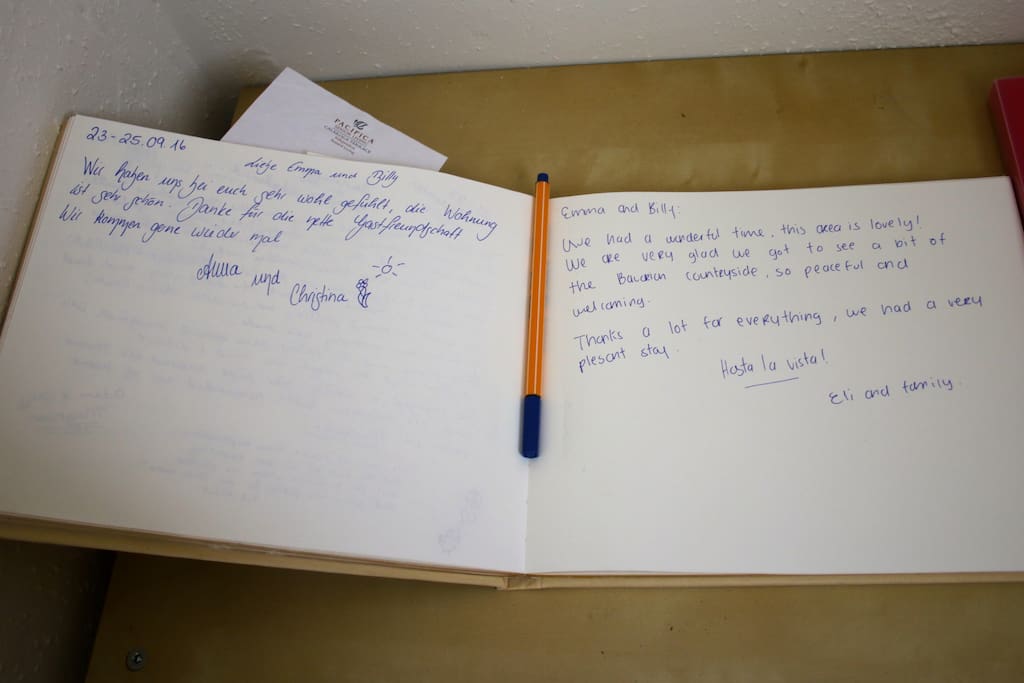 23-25.09.16
Liebe Emma und Billy
Wir haben uns bei euch sehr wohl gefühlt, die Wohnung
ist sehr schön. Danke für die nette Gastfreundschaft
Wir kommen gerne wieder mal
und
Christina
PACIFICA
SENIOR LIVING
CALABASAS TERRACE
Emma and Billy:
We had a wonderful time, this area is lovely!
We are very glad we got to see a bit of
the Bavarian countryside, so peaceful and
welcoming.
Thanks a lot for everything, we had a very
plesant stay.
Hasta la vista!
Eli and family.